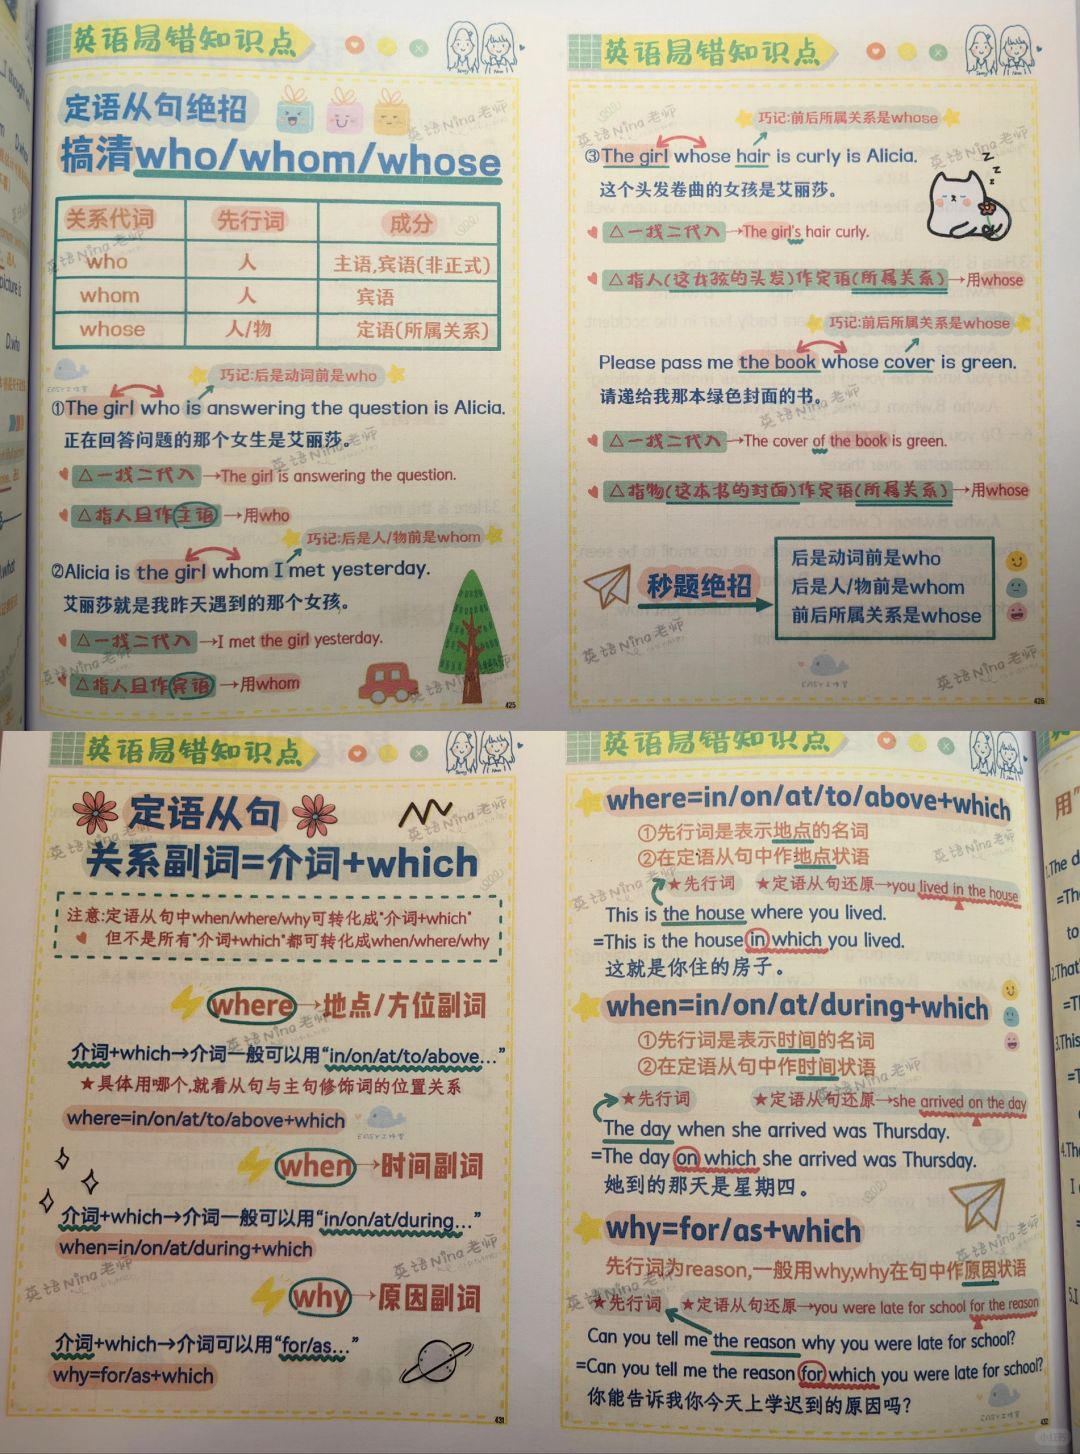 英语易错知识点
定语从句绝招
搞清who/whom/whose
关系代词 先行词 成分
who 人 主语,宾语(非正式)
whom 人 宾语
whose 人/物 定语(所属关系)
巧记:后是动词前是who
①The girl who is answering the question is Alicia.
正在回答问题的那个女生是艾丽莎。
△一找二代入→The girl is answering the question.
△指人且作主语→用who
巧记:后是人/物前是whom
②Alicia is the girl whom I met yesterday.
艾丽莎就是我昨天遇到的那个女孩。
△一找二代入→I met the girl yesterday.
△指人且作宾语→用whom
425
英语易错知识点
巧记:前后所属关系是whose
③The girl whose hair is curly is Alicia.
这个头发卷曲的女孩是艾丽莎。
△一找二代入→The girl's hair curly.
△指人(这女孩的头发)作定语(所属关系)→用whose
巧记:前后所属关系是whose
Please pass me the book whose cover is green.
请递给我那本绿色封面的书。
△一找二代入→The cover of the book is green.
△指物(这本书的封面)作定语(所属关系)→用whose
秒题绝招
后是动词前是who
后是人/物前是whom
前后所属关系是whose
英语Nina老师
EASY工作室
426
英语易错知识点
定语从句
关系副词=介词+which
注意:定语从句中when/where/why可转化成"介词+which"
但不是所有"介词+which"都可转化成when/where/why
where→地点/方位副词
介词+which→介词一般可以用"in/on/at/to/above..."
★具体用哪个,就看从句与主句修饰词的位置关系
where=in/on/at/to/above+which
when→时间副词
介词+which→介词一般可以用"in/on/at/during..."
when=in/on/at/during+which
why→原因副词
介词+which→介词可以用"for/as..."
why=for/as+which
431
英语易错知识点
where=in/on/at/to/above+which
①先行词是表示地点的名词
②在定语从句中作地点状语
★先行词 ★定语从句还原→you lived in the house
This is the house where you lived.
=This is the house in which you lived.
这就是你住的房子。
when=in/on/at/during+which
①先行词是表示时间的名词
②在定语从句中作时间状语
★先行词 ★定语从句还原→she arrived on the day
The day when she arrived was Thursday.
=The day on which she arrived was Thursday.
她到的那天是星期四。
why=for/as+which
先行词为reason,一般用why,why在句中作原因状语
★先行词 ★定语从句还原→you were late for school for the reason
Can you tell me the reason why you were late for school?
=Can you tell me the reason for which you were late for school?
你能告诉我你今天上学迟到的原因吗?
432